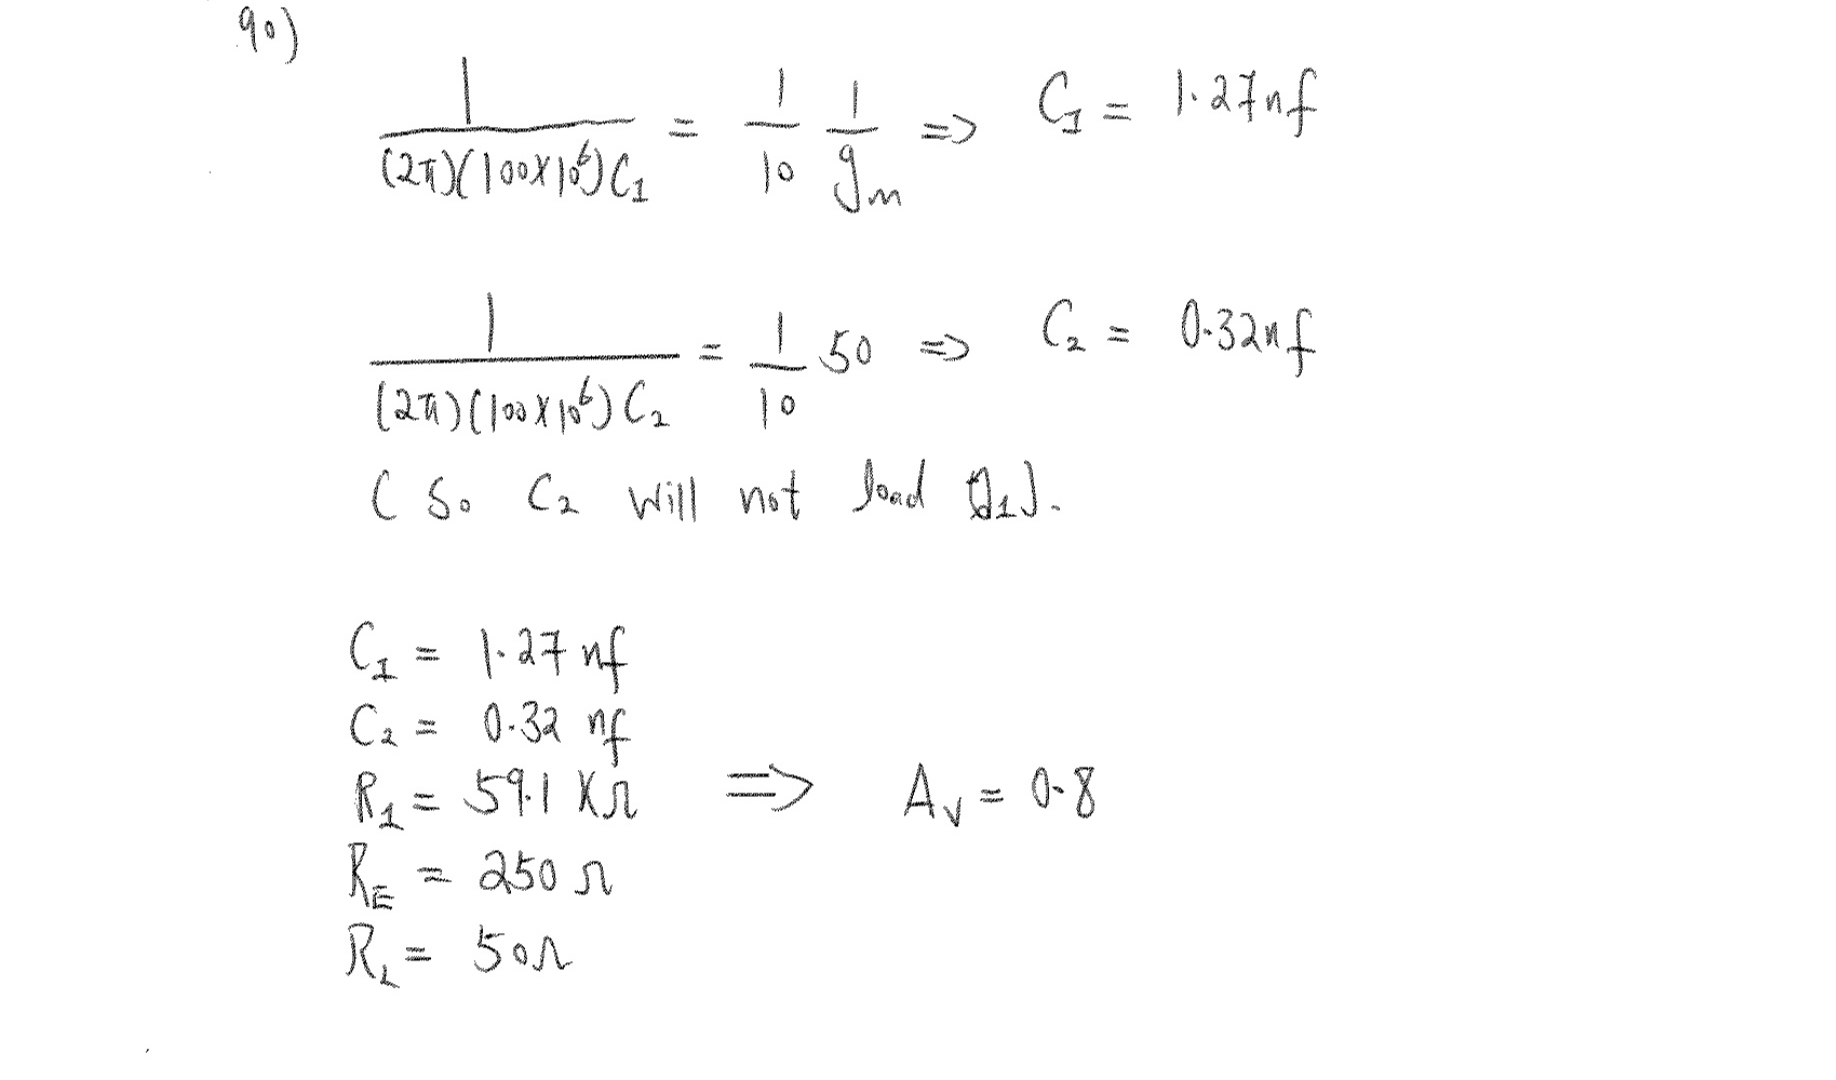 90)
1/((2π)(100×10⁶)C₁) = 1/10 1/gm ⇒ C₁ = 1.27nf
1/((2π)(100×10⁶)C₂) = 1/10 50 ⇒ C₂ = 0.32nf
( So C₂ will not load Q₁).
C₁ = 1.27 nf
C₂ = 0.32 nf
R₁ = 59.1 KΩ ⇒ Av = 0.8
RE = 250 Ω
RL = 50Ω